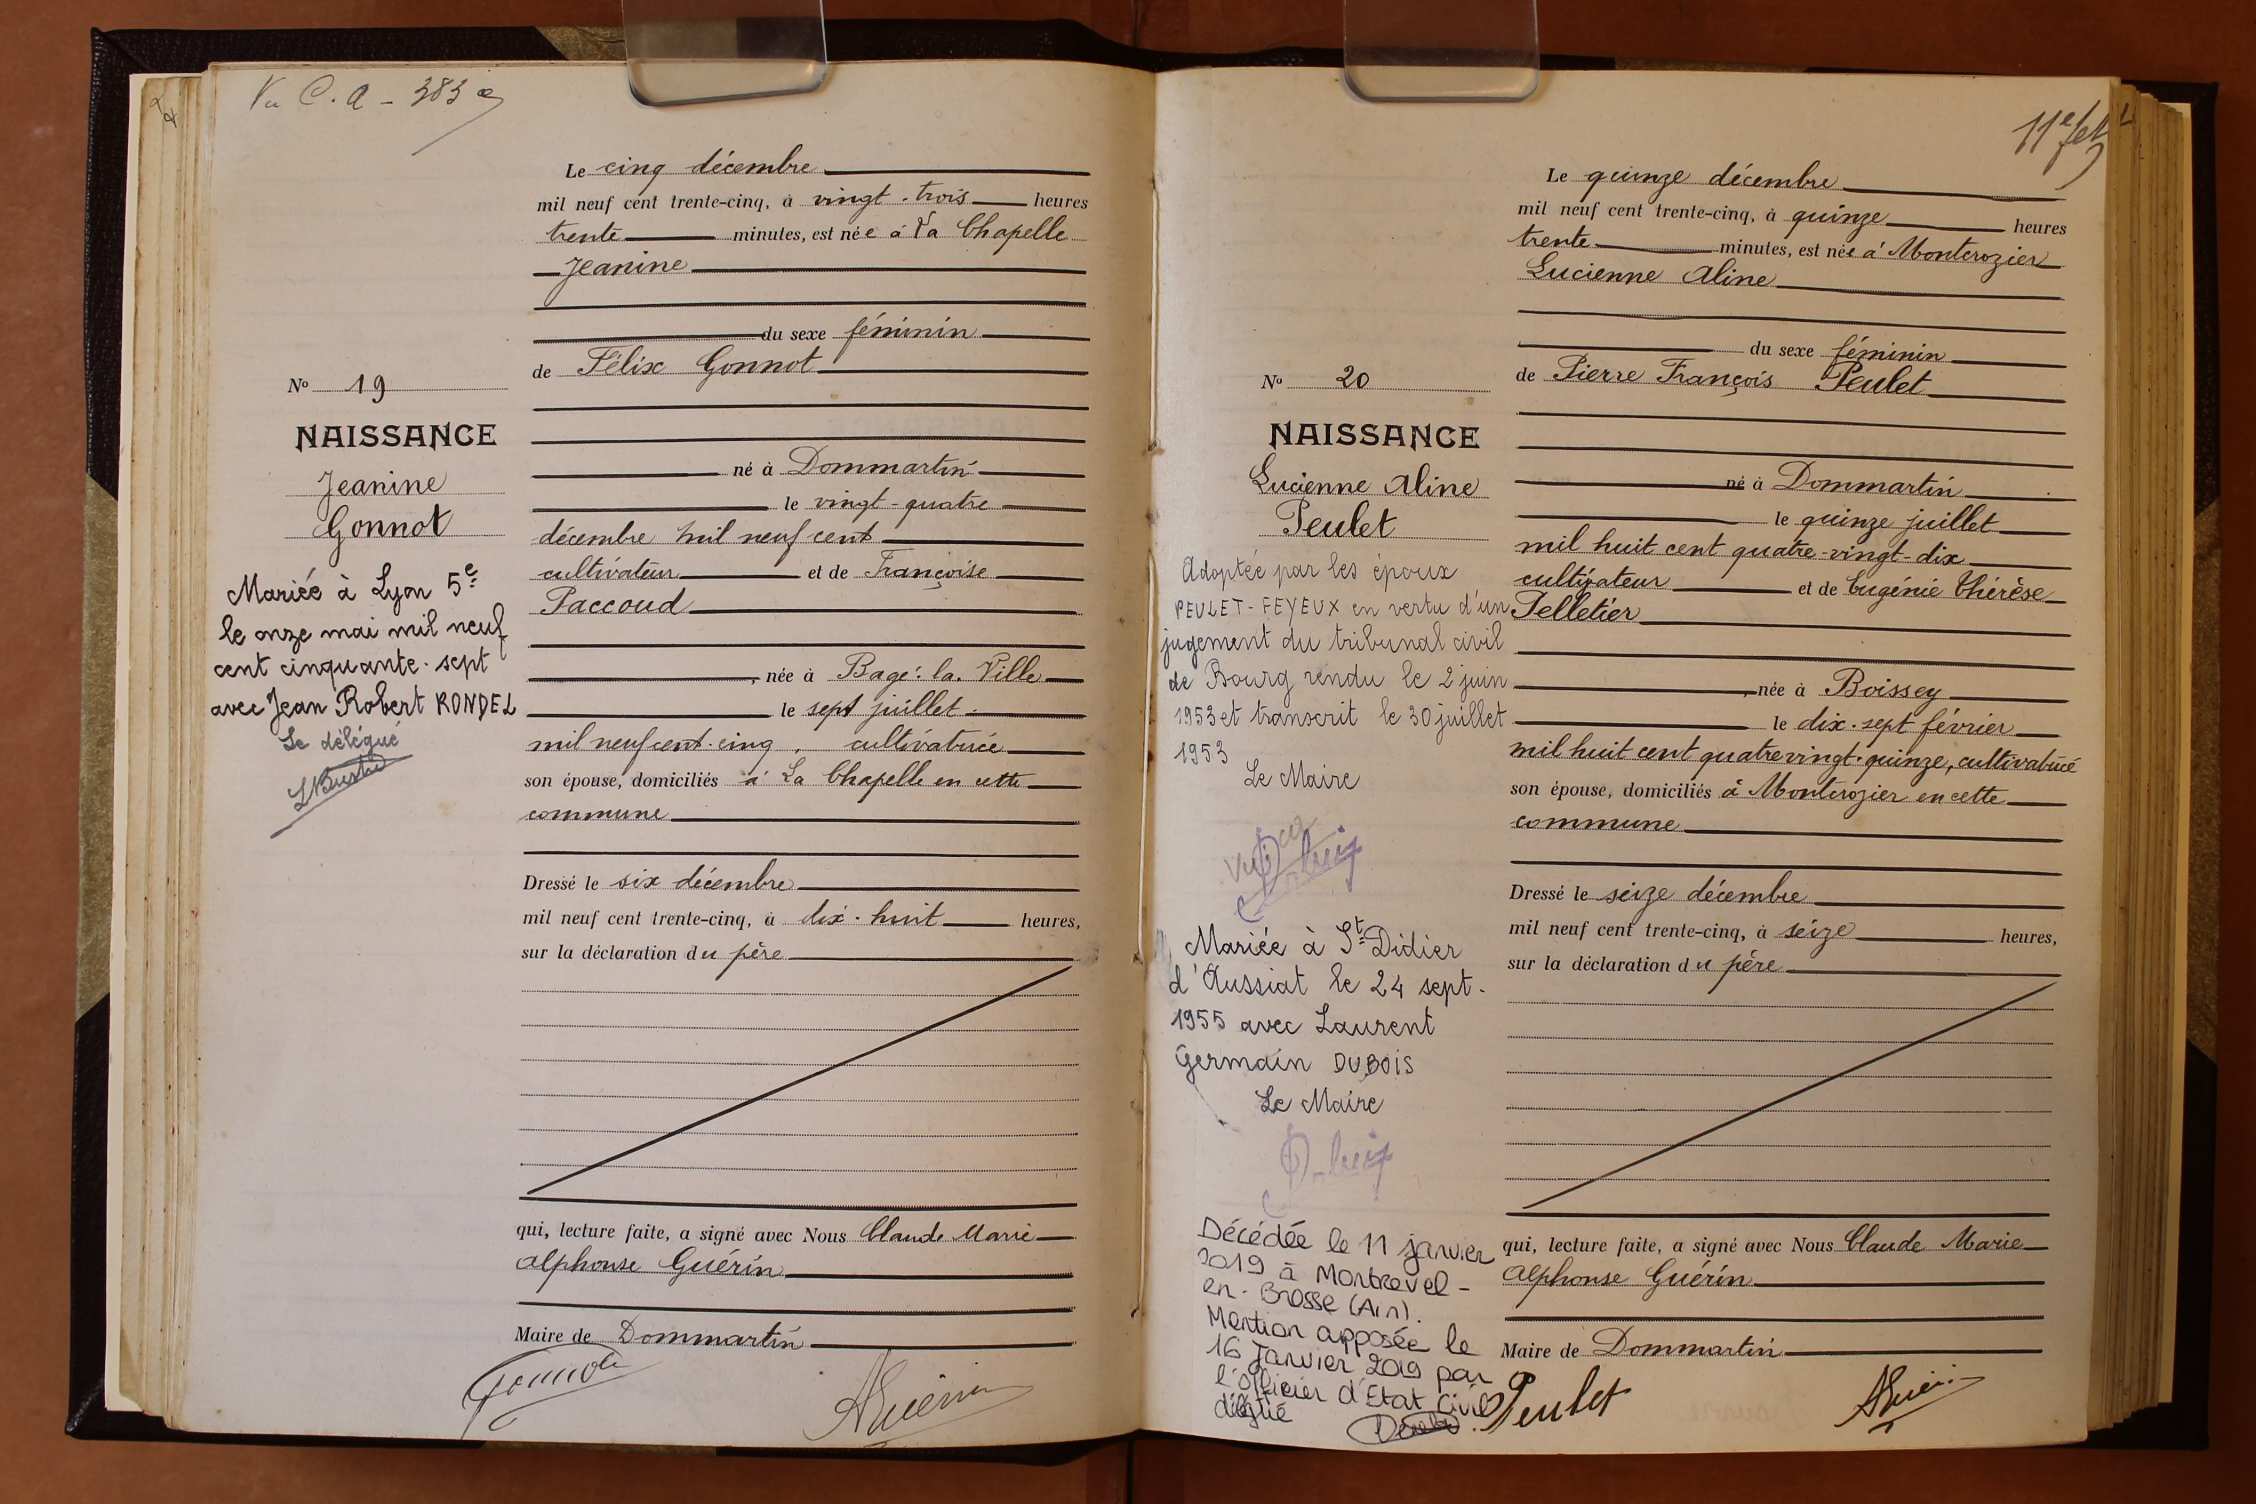 Vu C. A - 383
Le cinq décembre
mil neuf cent trente-cinq, à vingt-trois heures
trente minutes, est née à La Chapelle
Jeanine
du sexe féminin
de Félix Gonnot
né à Dommartin
le vingt-quatre
décembre mil neuf cent
cultivateur et de Françoise
Paccoud
, née à Bagé-la-Ville
le sept juillet
mil neuf cent-cinq, cultivatrice
son épouse, domiciliés à La Chapelle en cette
commune
Dressé le six décembre
mil neuf cent trente-cinq, à dix-huit heures,
sur la déclaration du père
qui, lecture faite, a signé avec Nous Claude Marie
Alphonse Guérin
Maire de Dommartin
Gonnot
AGuérin
No 19
NAISSANCE
Jeanine
Gonnot
Mariée à Lyon 5e
le onze mai mil neuf
cent cinquante-sept
avec Jean Robert RONDEL
Le délégué
11e fet
Le quinze décembre
mil neuf cent trente-cinq, à quinze heures
trente minutes, est née à Montcrozier
Lucienne Aline
du sexe féminin
de Pierre François Peulet
né à Dommartin
le quinze juillet
mil huit cent quatre-vingt-dix
cultivateur et de Eugénie Thérèse
Pelletier
, née à Boissey
le dix-sept février
mil huit cent quatre vingt-quinze, cultivatrice
son épouse, domiciliés à Montcrozier en cette
commune
Dressé le seize décembre
mil neuf cent trente-cinq, à seize heures,
sur la déclaration du père
qui, lecture faite, a signé avec Nous Claude Marie
Alphonse Guérin
Maire de Dommartin
Peulet
AGuérin
No 20
NAISSANCE
Lucienne Aline
Peulet
Adoptée par les époux
PEULET-FEYEUX en vertu d'un
jugement du tribunal civil
de Bourg rendu le 2 juin
1953 et transcrit le 30 juillet
1953
Le Maire
Vu
Mariée à St Didier
d'Aussiat le 24 sept.
1955 avec Laurent
Germain DUBOIS
Le Maire
Décédée le 11 janvier
2019 à Montrevel-
en-Bresse (Ain).
Mention apposée le
16 Janvier 2019 par
l'officier d'Etat Civil
délégué